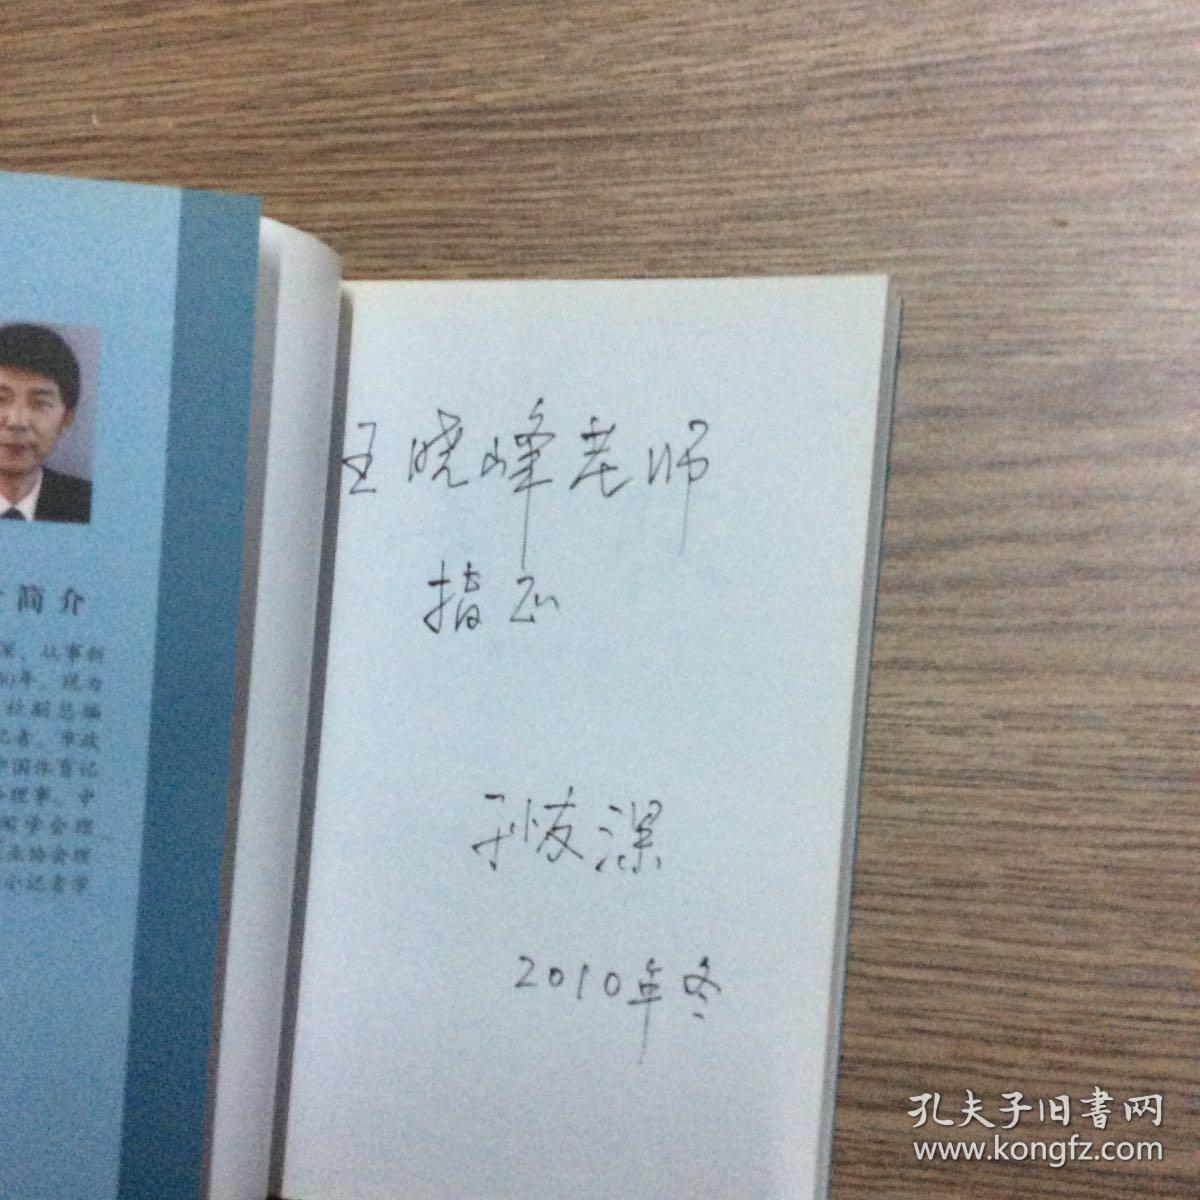 简介
深，从事新
30年，现为
社副总编
记者、市政
中国体育记
理事、中
闻学会理
业协会理
小记者学
王晓峰老师
指正
深
2010年冬
孔夫子旧书网
www.kongfz.com